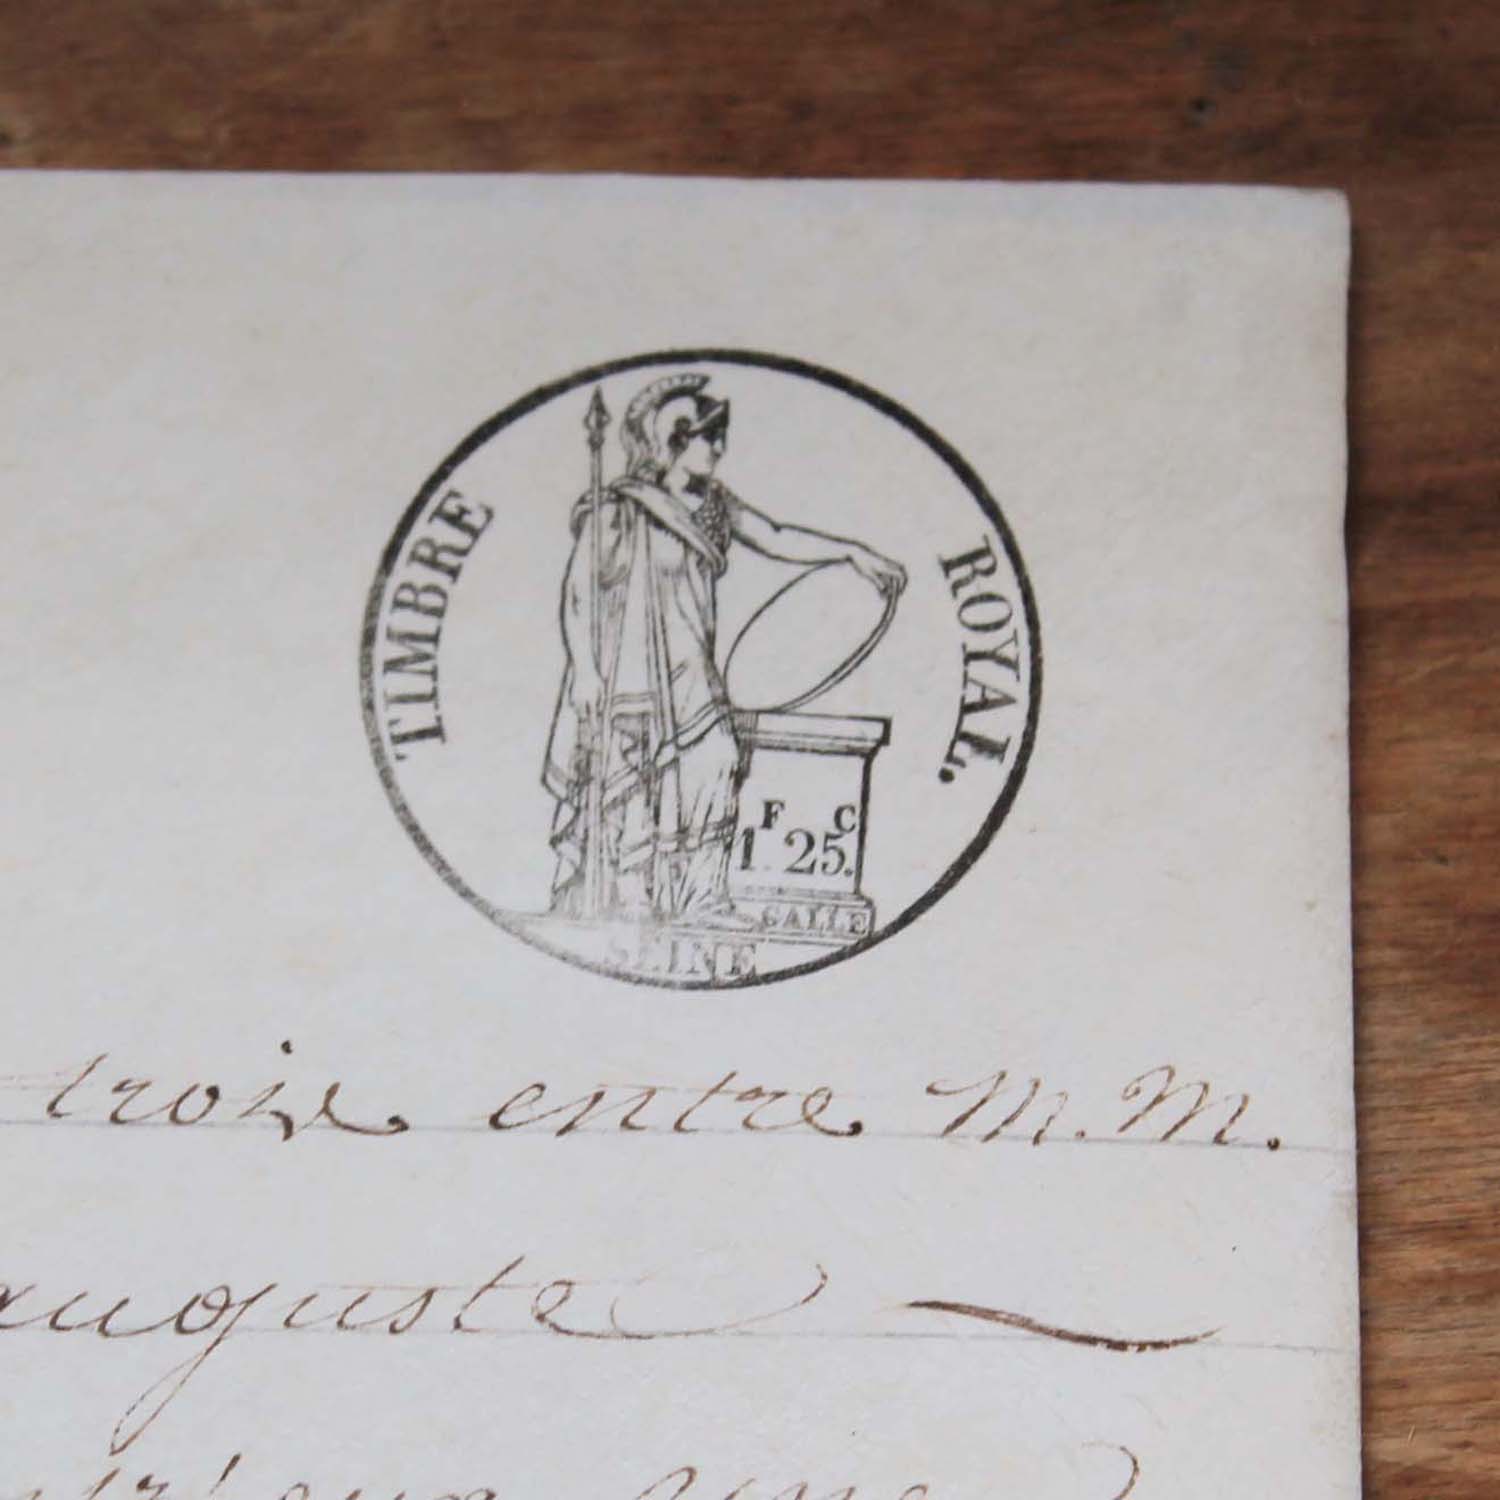 TIMBRE ROYAL.
F C
1. 25.
GALLE
SEINE
trois entre M. M.
auguste